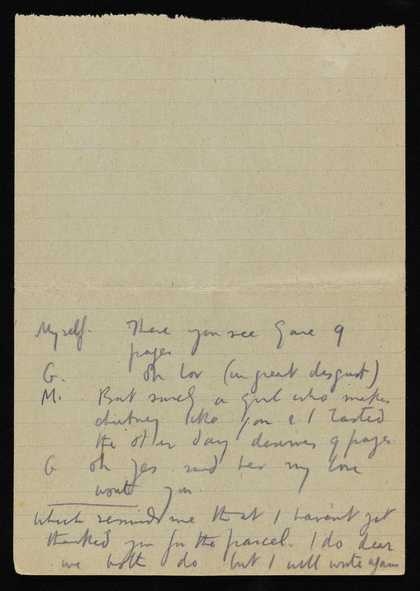 Myself. There you see Gave 9
pages
G. Oh Lor (in great disgust)
M. But surely a girl who makes
chutney like you & I tasted
the other day deserves 9 pages
G Oh yes send her my love
wont you
Which reminds me that I haven't yet
thanked you for the parcel. I do dear
we both do but I will write again